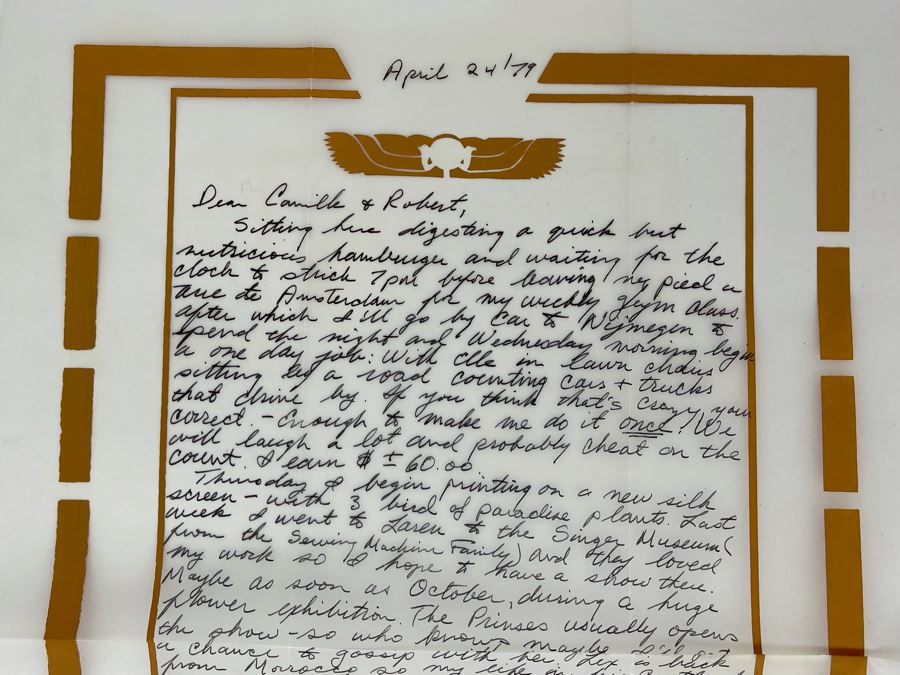 April 24/79
Dear Camille & Robert,
Sitting here digesting a quick but
nutricious hamburger and waiting for the
clock to strick 7pm before leaving my pied a
tere te Amsterdam for my weekly gym class.
after which I'll go by car to Nijmegen to
spend the night and Wednesday morning begin
a one day job: With Elle in lawn chairs
sitting by a road counting cars + trucks
that drive by. If you think that's crazy your
correct. - Enough to make me do it once! We
will laugh a lot and probably cheat on the
count. I earn $ ± 60.00
Thursday I begin printing on a new silk
screen - with 3 bird of paradise plants. Last
week I went to Laren to the Singer Museum (
from the Sewing Machine Family) and they loved
my work so I hope to have a show there.
Maybe as soon as October, during a huge
flower exhibition. The Prinses usually opens
the show - so who knows maybe I'll
a chance to gossip with her. Lex is back
from Morrocco so my life